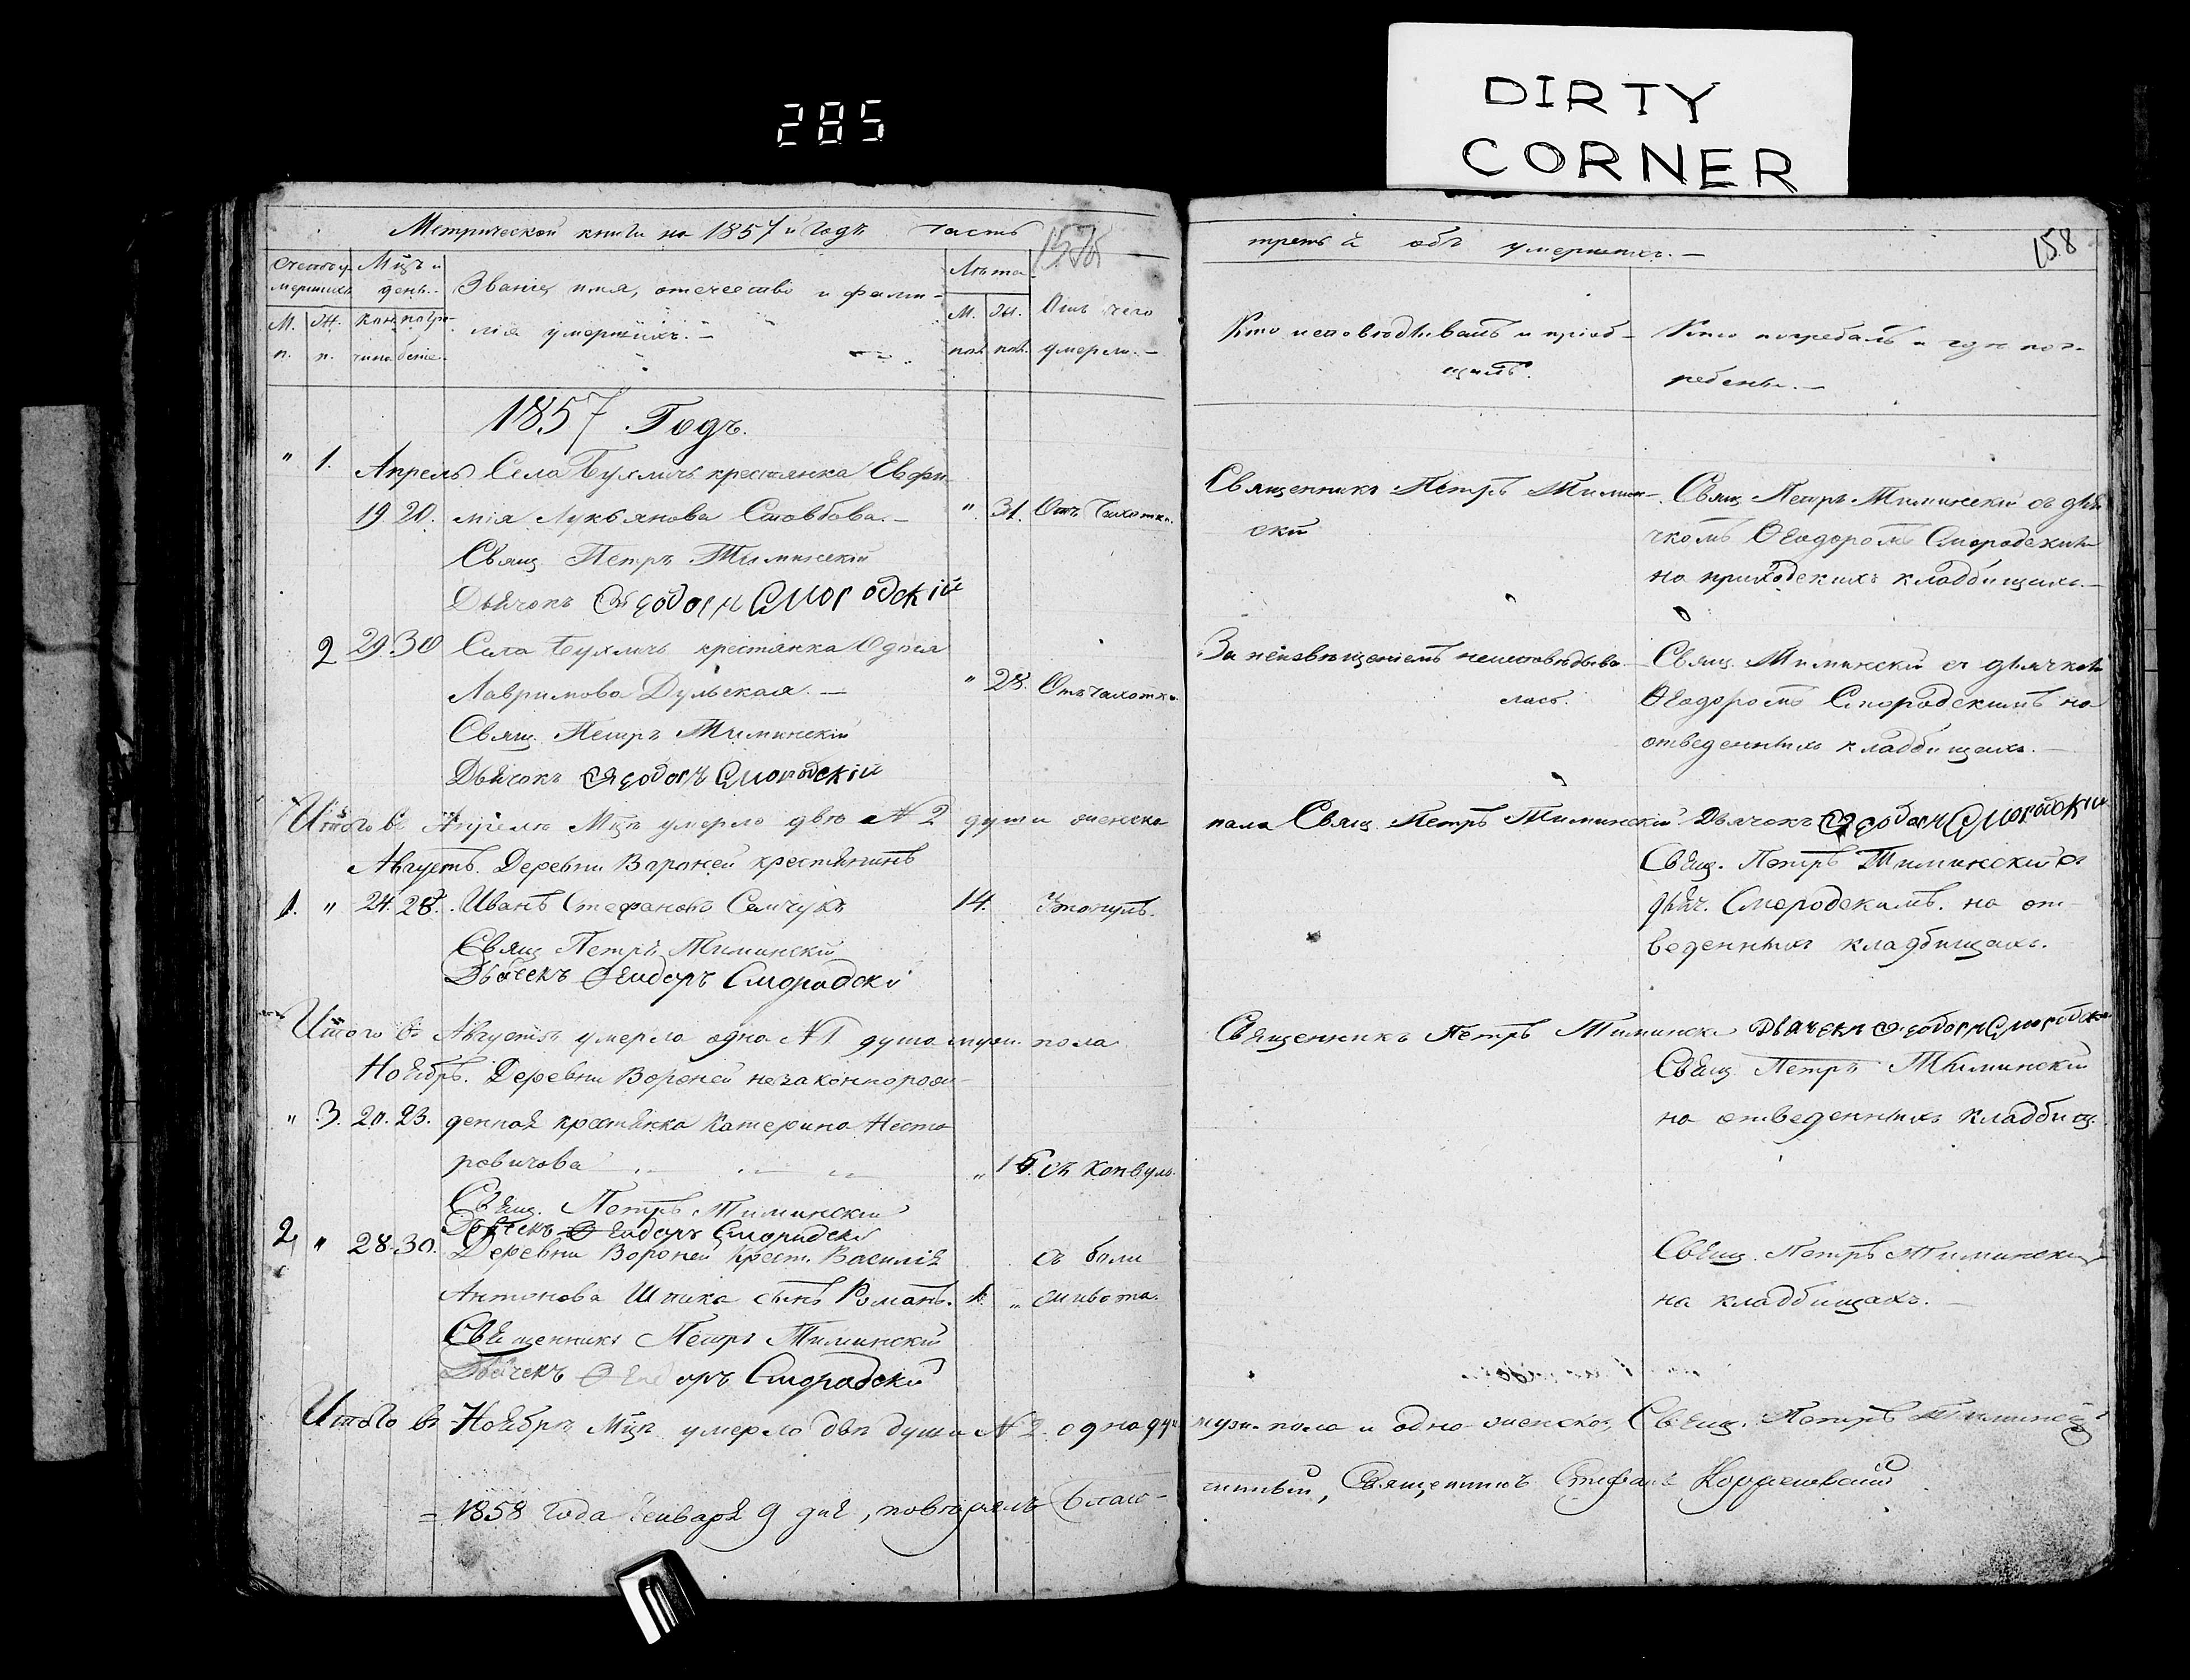 285
DIRTY
CORNER
Метрической книги на 1857й годъ часть
третья объ умершихъ.—
158
Счетъ умершихъ
Мцъ и день.
Званіе имя, отечество и фами-
лія умершихъ.—
Лѣта.
М. Ж.
М. п.
Ж. п.
Отъ чего
умерли.—
Кто исповѣдывалъ и пріоб-
щилъ.
Кто погребалъ и гдѣ пог-
ребены.—
1857 Годъ.
" 1. Апрель Села Бухличъ крестянка Евфи-
19 20. мія Лукьянова Стовбова.— " 31. Отъ чахотки.
Свящ Петръ Тиминскій
Дьячокъ Ѳеодоръ Смородскій
Священникъ Петръ Тимин-
скій
Свящ Петръ Тиминскій съ дья
чкомъ Ѳеодоромъ Смородскимъ
на приходскихъ кладбищахъ.—
2 29. 30 Села Бухличъ крестянка
Дульская.— " 28. Отъ чахотки.
Свящ. Петръ Тиминскій
Дьячокъ Ѳеодоръ Смородскій
За неизвѣщеніемъ неисповѣдыва-
лась.
Свящ. Тиминскій съ дьячкомъ
Ѳеодоромъ Смородскимъ на
отведенныхъ кладбищахъ.—
Итого въ Апрелѣ Мцѣ умерло двѣ N 2 души женска
пола Свящ. Петръ Тиминскій Дьячокъ Ѳеодоръ Смородскій
Августъ. Деревни Вароней крестянинъ
1. " 24. 28. Иванъ Стефановъ Семчукъ 14. Утонулъ.
Свящ Петръ Тиминскій
Дьячекъ Ѳеидоръ Смородскі
Свящ. Петръ Тиминский съ
дьяч. Смородскимъ. на от-
веденныхъ кладбищахъ.
Итого въ Августѣ умерла одна N 1 душа муж. пола
Священникъ Петръ Тиминскі Дьячекъ Ѳеодоръ Смородскі
Ноябрь. Деревни Вороней незаконнорож-
" 3. 20. 23. денная крестянка Катерина Несте
ровичова съ конвуль.
Свящ. Петръ Тиминскій
Дьячекъ Ѳеидоръ Смородскі
Свящ Петръ Тиминскій
на отведенныхъ кладбищ.
2 " 28. 30. Деревни Вороней крест. Василія съ боли
Антонова Шпика сынъ Романъ. " живота.
Священникъ Петръ Тиминскій
Дьячекъ Ѳеидоръ Смородскій
Свящ. Петръ Тиминскій
на кладбищахъ.—
Итого въ Ноябрѣ Мцѣ умерло двѣ души N 2. одна душ
муж. пола и одна женска, Свящ. Петръ Тиминскій
= 1858 года Января 9 дня, повѣрялъ Благо-
чинный, Священникъ Стефанъ